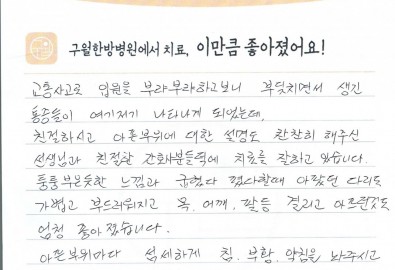 구월한방병원에서 치료, 이만큼 좋아졌어요!
교통사고로 입원을 부랴부랴하고보니 부딪치면서 생긴
통증들이 여기저기 나타나게 되었는데,
친절하시고 아픈부위에 대한 설명도 찬찬히 해주신
선생님과 친절한 간호사분들덕에 치료를 잘하고 있습니다.
퉁퉁부은듯한 느낌과 굽혔다 폈다할때 아팠던 다리도
가볍고 부드러워지고 목, 어깨, 팔등 결리고 아프던것도
엄청 좋아졌습니다.
아픈부위마다 섬세하게 침, 부항, 약침을 놔주시고